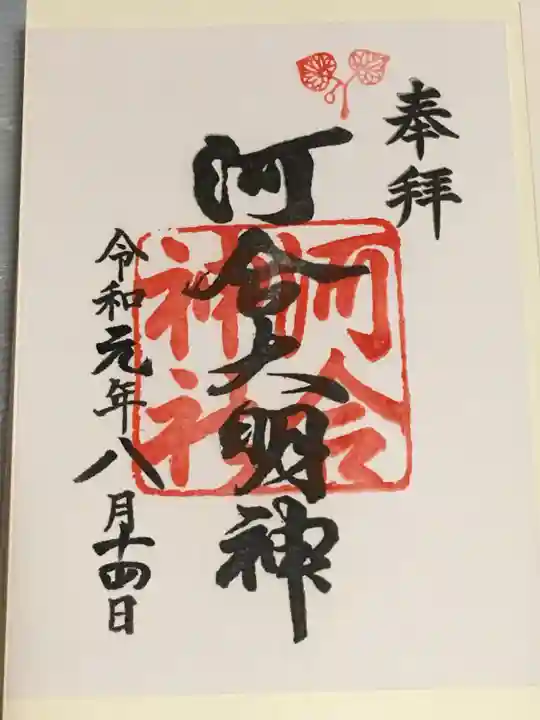 奉拝
河合大明神
河合
神社
令和元年八月十四日